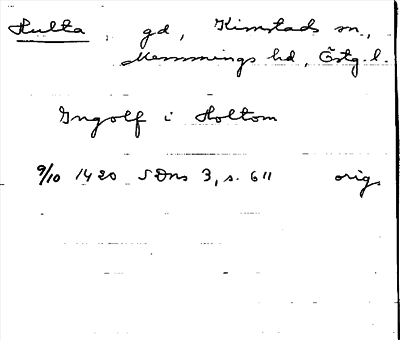 Hulta, gd, Kimstads sn.,
Memmings hd, Östg. l.
Ingolf i Holtom
9/10 1420 SDns 3, s. 611 orig.